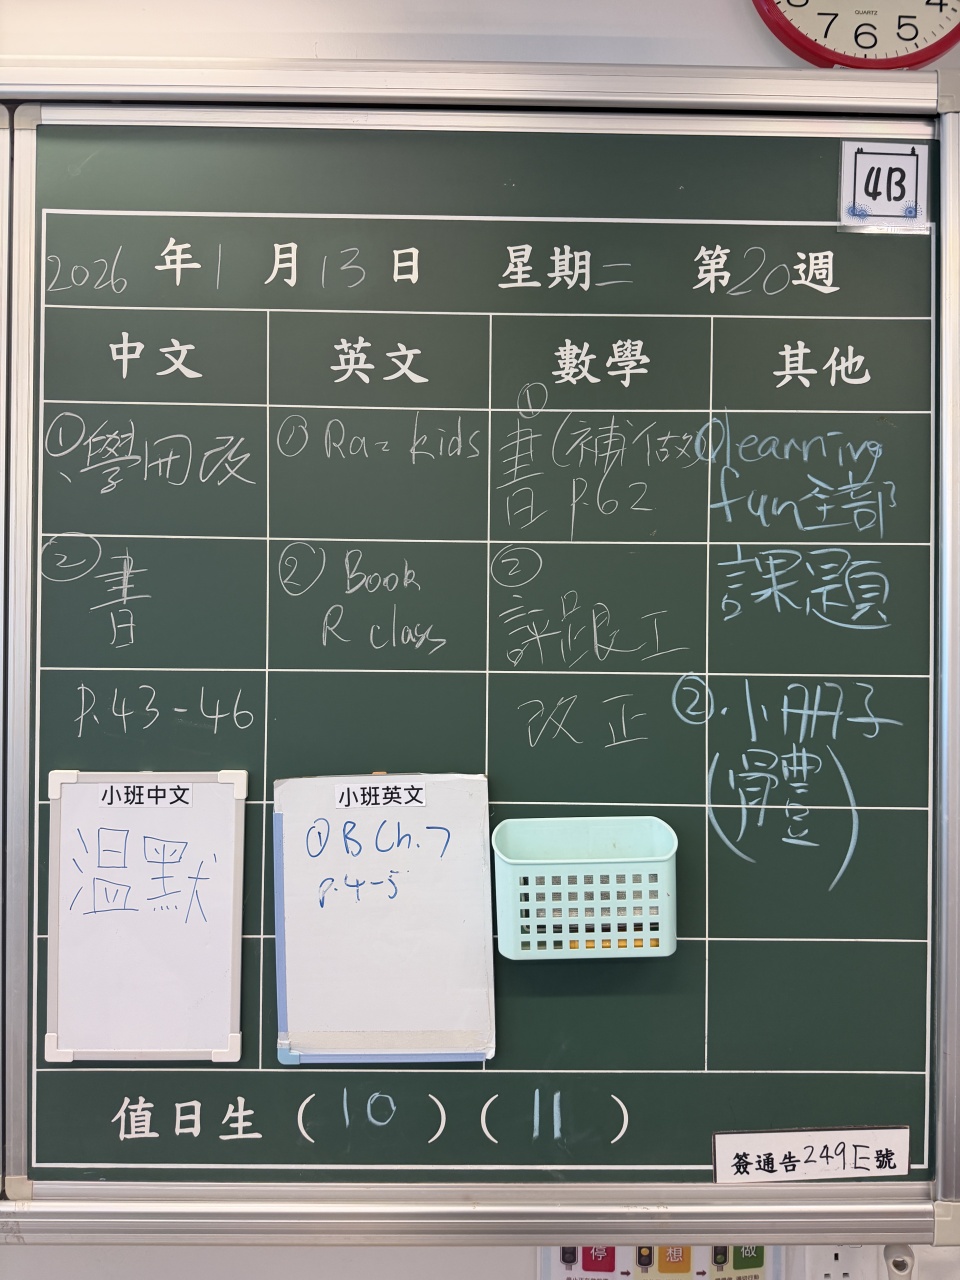 7 6 5 4
QUARTZ
4B
2026年1月13日 星期二 第20週
中文 英文 數學 其他
①學冊改
②書
P.43-46
①Raz kids
②Book
R class
①
書(補做)
P.62
②
評跟工
改正
①learning
fun全部
課題
②.小冊子
(體)
小班中文
溫默
小班英文
①B Ch.7
p.4-5
值日生(10)(11)
簽通告249E號
停 想 做